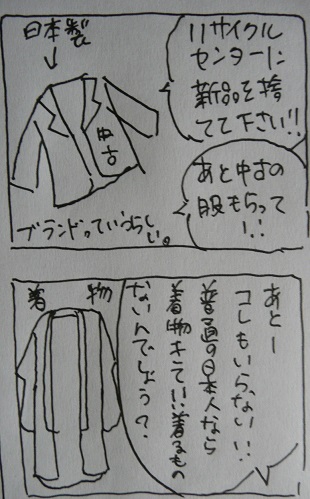 リサイクル
センターに
新品を捨
てて下さい!!
あと中古の
服もらって
!!
日本製
中古
ブランドっていうらしい。
あとー
コレもいらない!!
普通の日本人なら
着物きていい着るもの
ないんでしょう?
着物